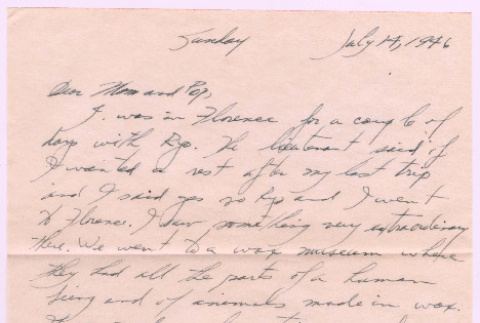 Sunday July 14, 1946
Dear Mom and Pop,
I was in Florence for a couple of
days with Rip. The lieutenant said if
I wanted a rest after my last trip
and I said yes so Rip and I went
to Florence. I saw something very extraordinary
there. We went to a wax museum where
they had all the parts of a human
being and of animals made in wax.